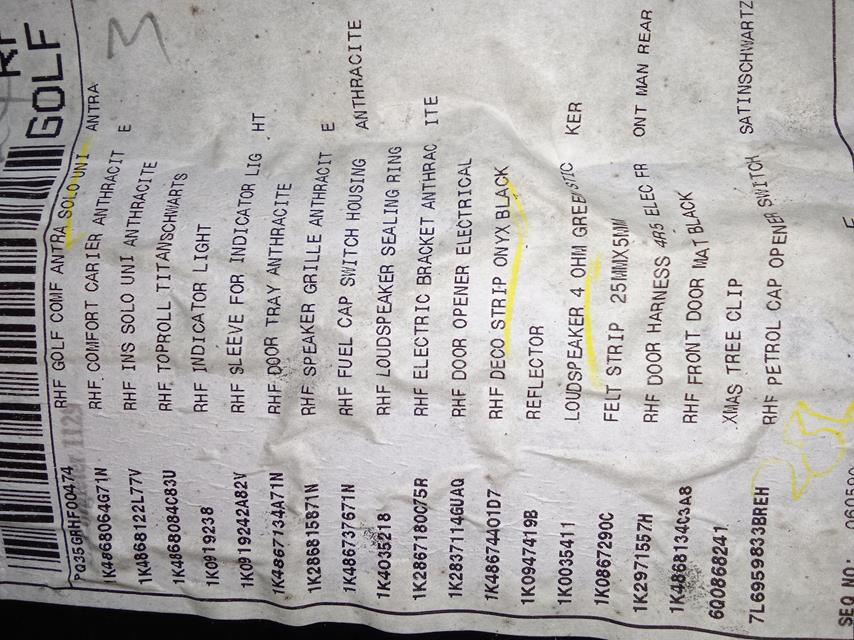 GOLF
PQ35GRHF00474 RHF GOLF COMF ANTRA SOLO UNI ANTRA
1K4868064G71N RHF COMFORT CARIER ANTHRACIT E
1K4868122L77V RHF INS SOLO UNI ANTHRACITE
1K4868084C83U RHF TOPROLL TITANSCHWARTS
1K0919238 RHF INDICATOR LIGHT
1K0919242A82V RHF SLEEVE FOR INDICATOR LIG HT
1K4867134A71N RHF DOOR TRAY ANTHRACITE
1K286815871N RHF SPEAKER GRILLE ANTHRACIT E
1K486737671N RHF FUEL CAP SWITCH HOUSING ANTHRACITE
1K4035218 RHF LOUDSPEAKER SEALING RING
1K2867180C75R RHF ELECTRIC BRACKET ANTHRAC ITE
1K2837114GUAQ RHF DOOR OPENER ELECTRICAL
1K48674401D7 RHF DECO STRIP ONYX BLACK
1K0947419B REFLECTOR
1K0035411 LOUDSPEAKER 4 OHM KER
1K0867290C FELT STRIP 25MMX5MM
1K2971557H RHF DOOR HARNESS ELEC FR ONT MAN REAR
1K4868134C3A8 RHF FRONT DOOR MAT BLACK
6Q0868241 XMAS TREE CLIP
7L6959833BREH RHF PETROL CAP OPENER SWITCH SATINSCHWARTZ
SEQ NO: